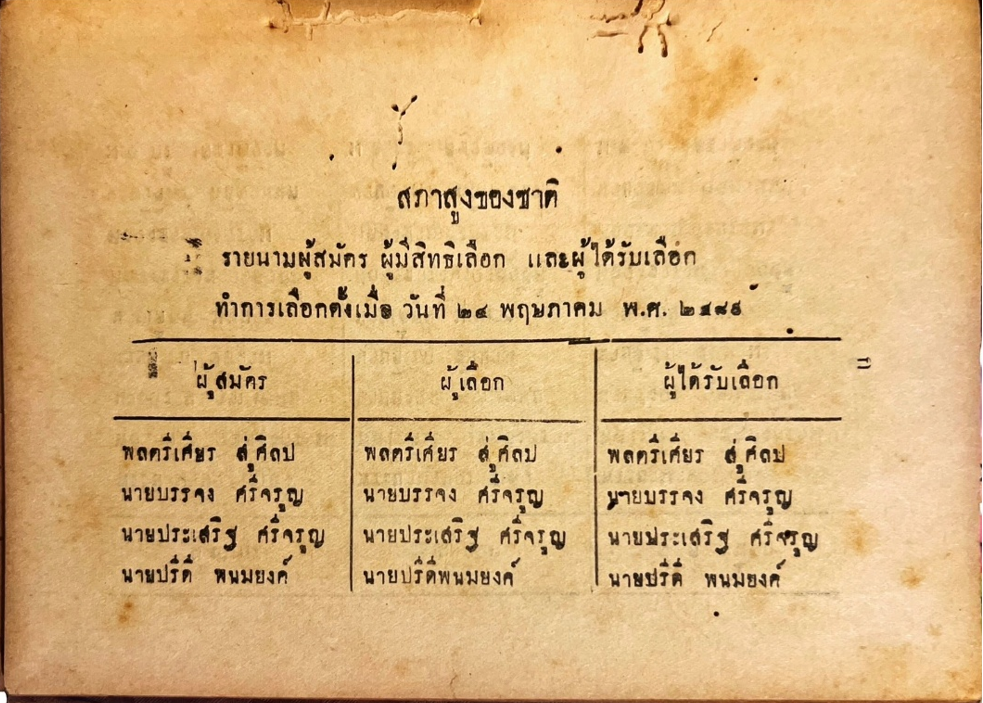 สภาสูงของชาติ
รายนามผู้สมัคร ผู้มีสิทธิเลือก และผู้ได้รับเลือก
ทำการเลือกตั้งเมื่อ วันที่ ๒๔ พฤษภาคม พ.ศ. ๒๔๘๙
ผู้สมัคร ผู้เลือก ผู้ได้รับเลือก
พลตรีเศียร สู่ศิลป พลตรีเศียร สู่ศิลป พลตรีเศียร สู่ศิลป
นายบรรจง ศรีจรูญ นายบรรจง ศรีจรูญ นายบรรจง ศรีจรูญ
นายประเสริฐ ศรีจรูญ นายประเสริฐ ศรีจรูญ นายประเสริฐ ศรีจรูญ
นายปรีดี พนมยงค์ นายปรีดีพนมยงค์ นายปรีดี พนมยงค์